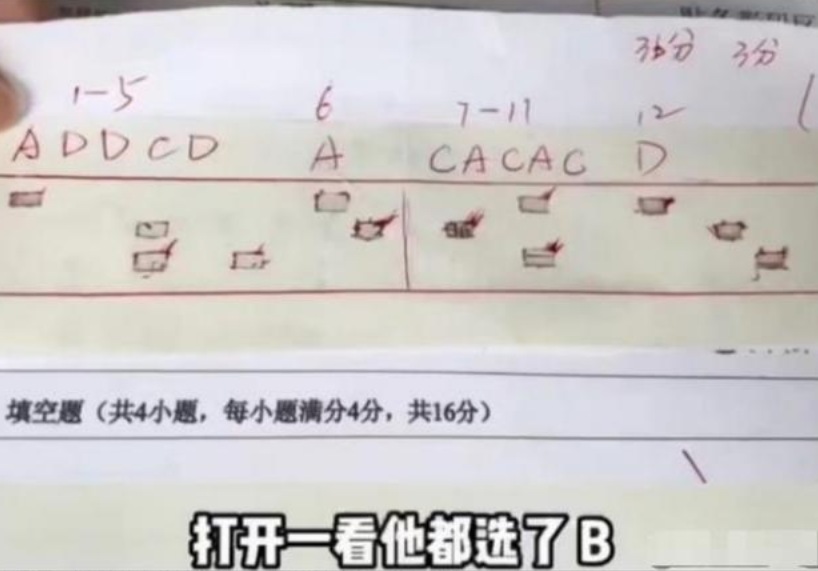 36分 3分
1-5 6 7-11 12
ADDCD A CACAC D
填空题（共4小题，每小题满分4分，共16分）
打开一看他都选了B